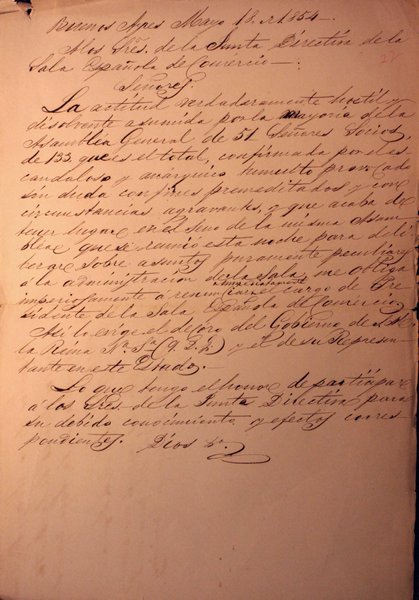 Buenos Ayres Mayo 18 de 1854.
A los Sres. de la Junta Directiva de la
Sala Española de Comercio.
Señores
La actitud verdaderamente hostil y
disolvente asumida por la mayoria de la
Asamblea General de 51 Señores Socios
de 133 que es el total, confirmada por el es-
candaloso y anarquico tumulto provocado
sin duda con fines premeditados y con
circunstancias agravantes, o que acaba de
tener lugar en el seno de la misma Asam-
blea que se reunio esta noche para deli-
berar sobre asuntos puramente peculiares
á la administracion de la Sala, me obliga
imperiosamente a renunciar inmediatamente el cargo de Pre-
sidente de la Sala Española de Comercio.
Asi lo exige el decoro del Gobierno de S. M.
la Reina Nª Sª (q. D. g.) y el de su Represen-
tante en este Estado.
Lo que tengo el honor de participar
á los Sres. de la Junta Directiva para
su debido conocimiento y efectos corres-
pondientes. Dios &ª